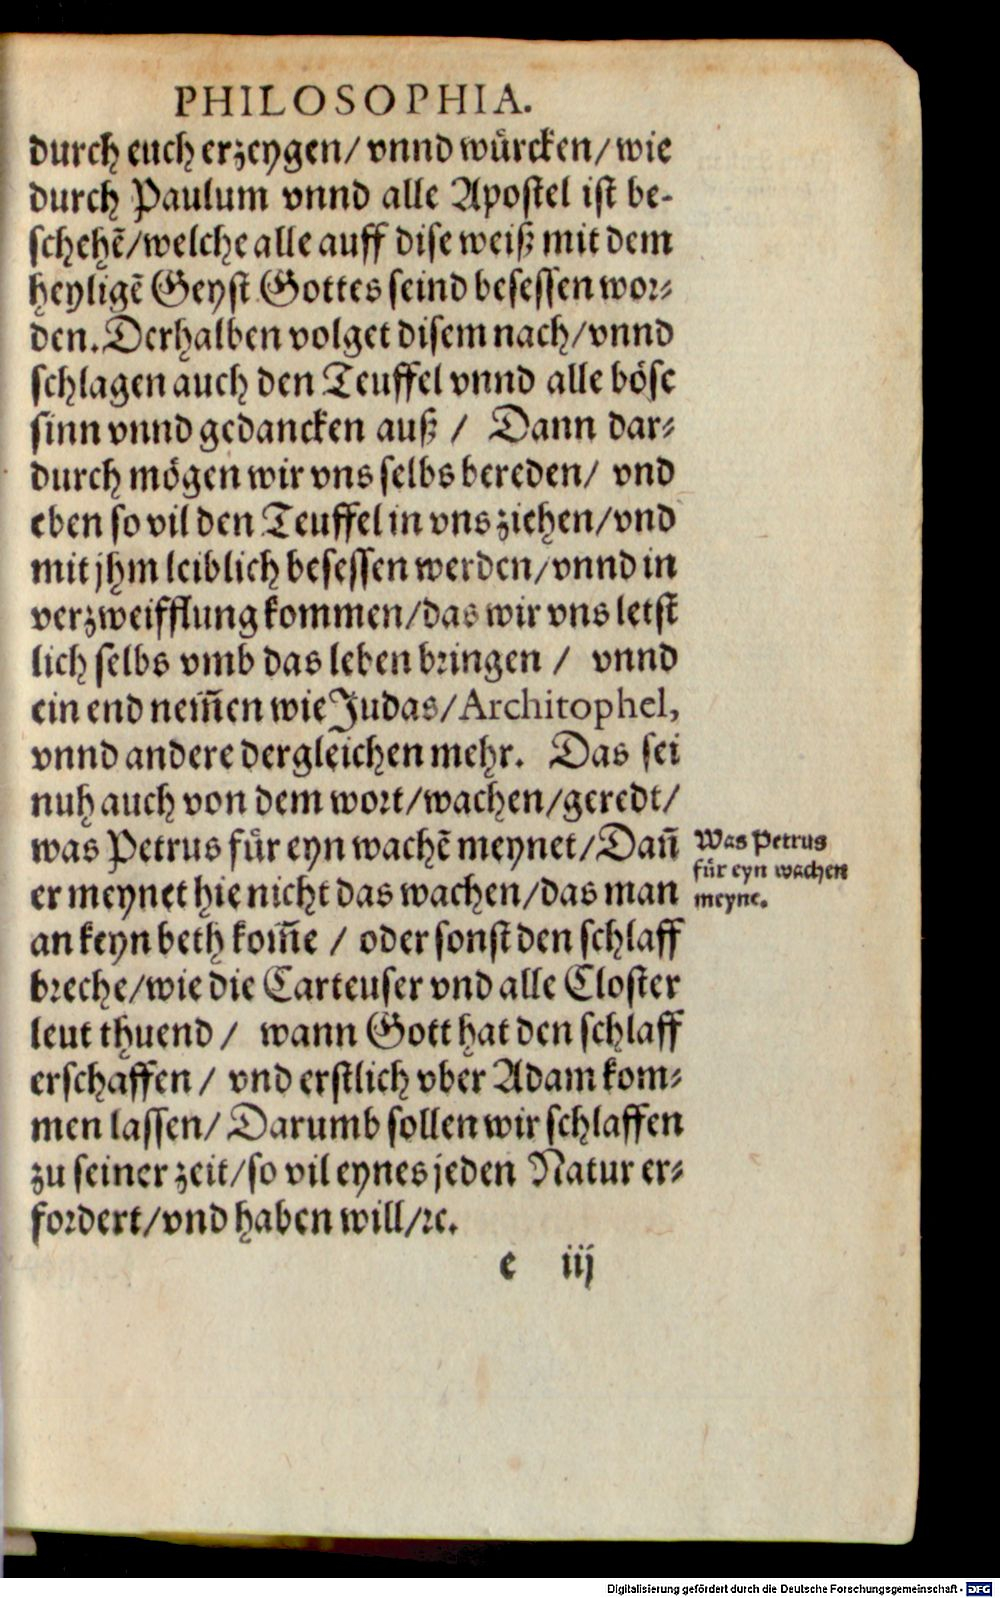 PHILOSOPHIA.
durch euch erzeygen/ vnnd wuͤrcken/ wie
durch Paulum vnnd alle Apostel ist be-
schehẽ/welche alle auff dise weiß mit dem
heyligẽ Geyst Gottes seind besessen wor-
den. Derhalben volget disem nach/ vnnd
schlagen auch den Teuffel vnnd alle boͤse
sinn vnnd gedancken auß / Dann dar-
durch moͤgen wir vns selbs bereden/ vnd
eben so vil den Teuffel in vns ziehen/vnd
mit jhm leiblich besessen werden/vnnd in
verzweifflung kommen/das wir vns letst
lich selbs vmb das leben bringen / vnnd
ein end nem̃en wie Judas/Architophel,
vnnd andere dergleichen mehr. Das sei
nuh auch von dem wort/wachen/geredt/
was Petrus fuͤr eyn wachẽ meynet/Dañ
er meynet hie nicht das wachen/das man
an keyn beth kom̃e / oder sonst den schlaff
breche/wie die Carteuser vnd alle Closter
leut thuend / wann Gott hat den schlaff
erschaffen / vnd erstlich vber Adam kom-
men lassen/ Darumb sollen wir schlaffen
zu seiner zeit/so vil eynes jeden Natur er-
fordert/vnd haben will/ꝛc.
Was Petrus
fuͤr eyn wachen
meyne.
e iij
Digitalisierung gefördert durch die Deutsche Forschungsgemeinschaft - DFG